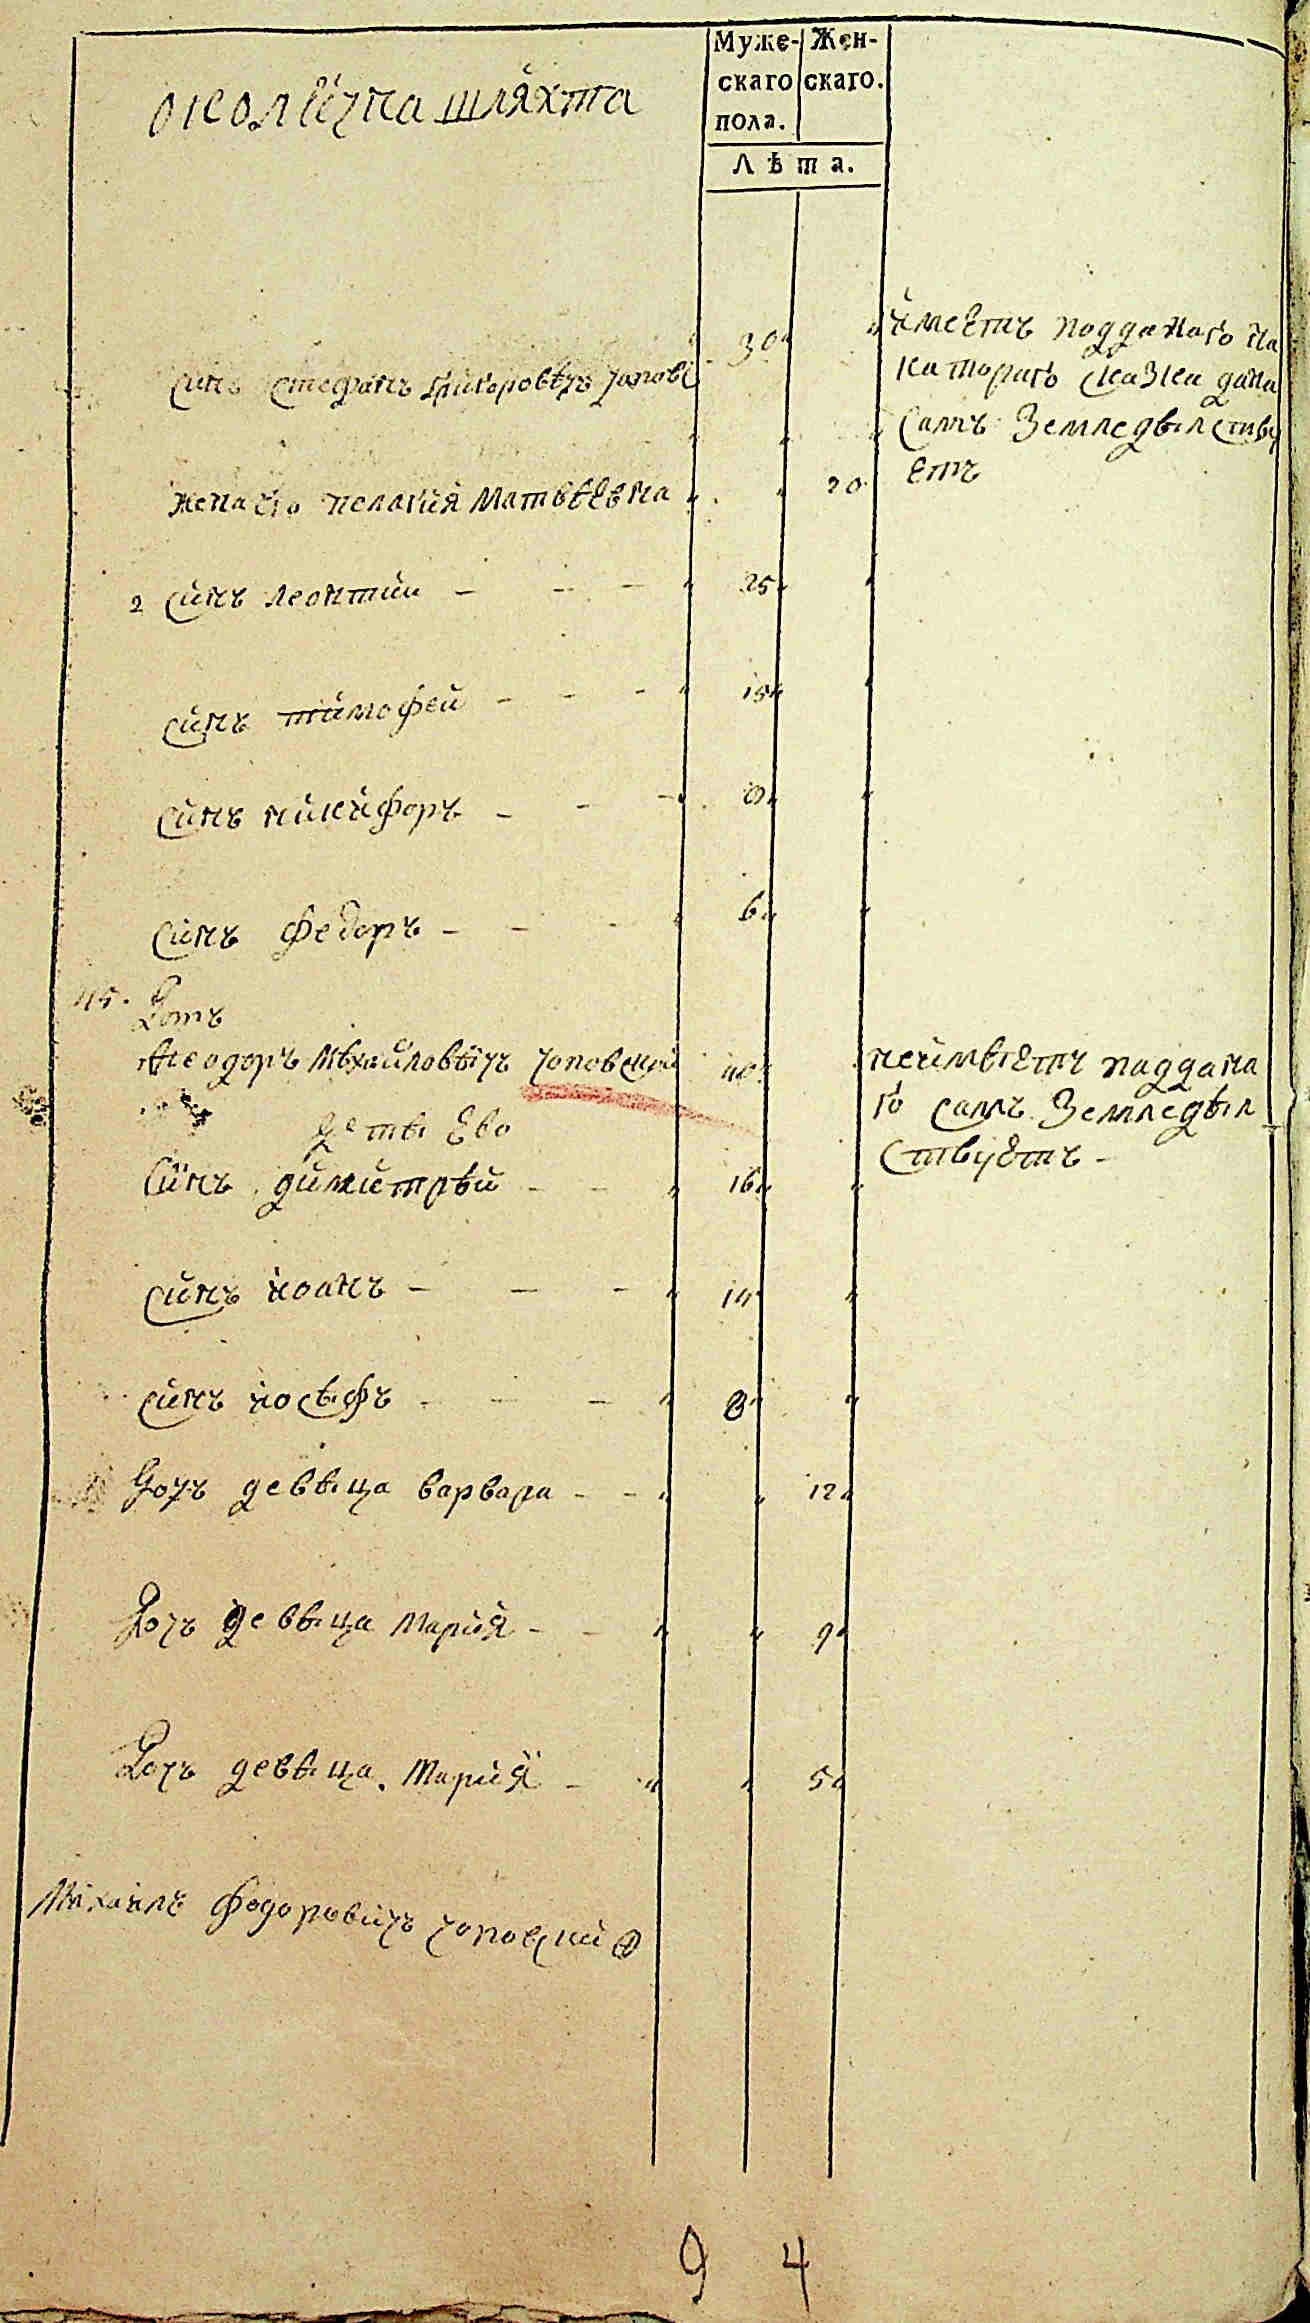 Муже- Жен-
скаго скаго.
пола.
Лѣта.
околична шляхта
синъ Стефанъ Григоровѣчъ Чоповс 30
имеетъ подданаго на
каторагъ сказка дана
Самъ Земледѣлству
етъ
жена его пелагия Матвѣевна 20
2 синъ леонтии 25
синъ тимофей 15
синъ никифоръ
синъ федоръ 6
45.
Ѳеодоръ Мѣхайловѣчъ Чоповский 40
неимѣетъ паддана
го самъ Земледѣл
ствуетъ
детѣ Ево
Синъ димитрѣй 16
синъ иоанъ 14
синъ иосѣфъ 8
Дочъ девѣца варвара 12
Дочъ девѣца Мария 9
Дочъ девѣца Мария 5
Михаилъ Федоровичъ Чоповский
9 4